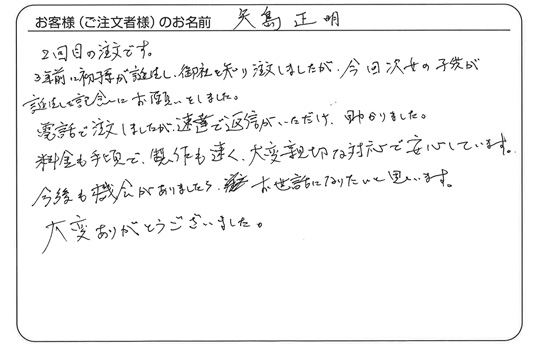 お客様(ご注文者様)のお名前 矢島 正明
2回目の注文です。
3年前に初孫が誕生し、御社を知り注文しましたが、今回次女の子供が
誕生し記念にお願いをしました。
電話で注文しましたが、速達で返信がいただけ、助かりました。
料金も手頃で、製作も速く、大変親切な対応で安心しています。
今後も機会がありましたら、お世話になりたいと思います。
大変ありがとうございました。